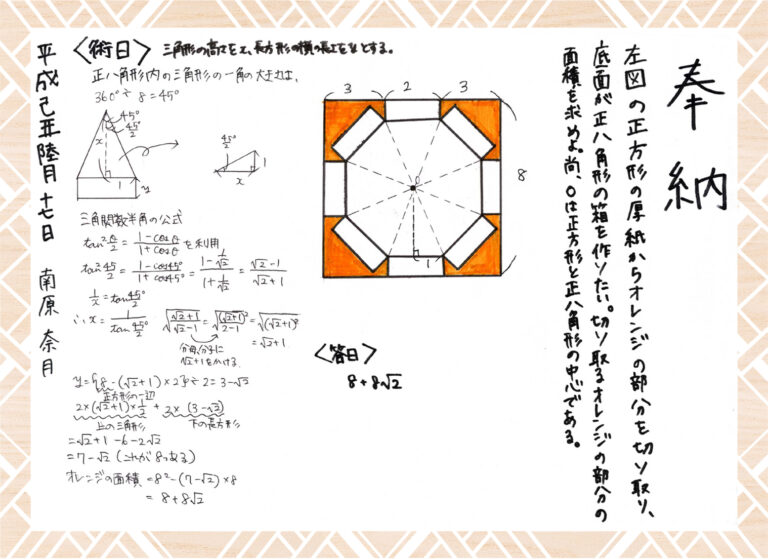 奉納
左図の正方形の厚紙からオレンジの部分を切り取り、
底面が正八角形の箱を作りたい。切り取るオレンジの部分の
面積を求めよ。尚、Oは正方形と正八角形の中心である。
3 2 3
8
O
1
<答曰>
8+8√2
<術曰> 三角形の高さをx、長方形の横の長さをyとする。
正八角形内の三角形の一角の大きさは、
360°÷8=45°
45°
45°/2
x
1
y
45°/2
1
x
三角関数半角の公式
tan²θ/2 = 1-cosθ/1+cosθ を利用
tan²45/2 = 1-cos45°/1+cos45° = 1-1/√2/1+1/√2 = √2-1/√2+1
1/x = tan45°/2
∴x = 1/tan45°/2 √√2+1/√2-1 = √(√2+1)²/2-1 = √(√2+1)²
= √2+1
分母、分子に
√2+1をかける
y={8-(√2+1)×2}÷2=3-√2
正方形の一辺
2×(√2+1)×1/2 + 2×(3-√2)
上の三角形 下の長方形
=√2+1-6-2√2
=7-√2 (これが8つある)
オレンジの面積 =8²-(7-√2)×8
= 8+8√2
平成己亥陸月十七日 南原奈月